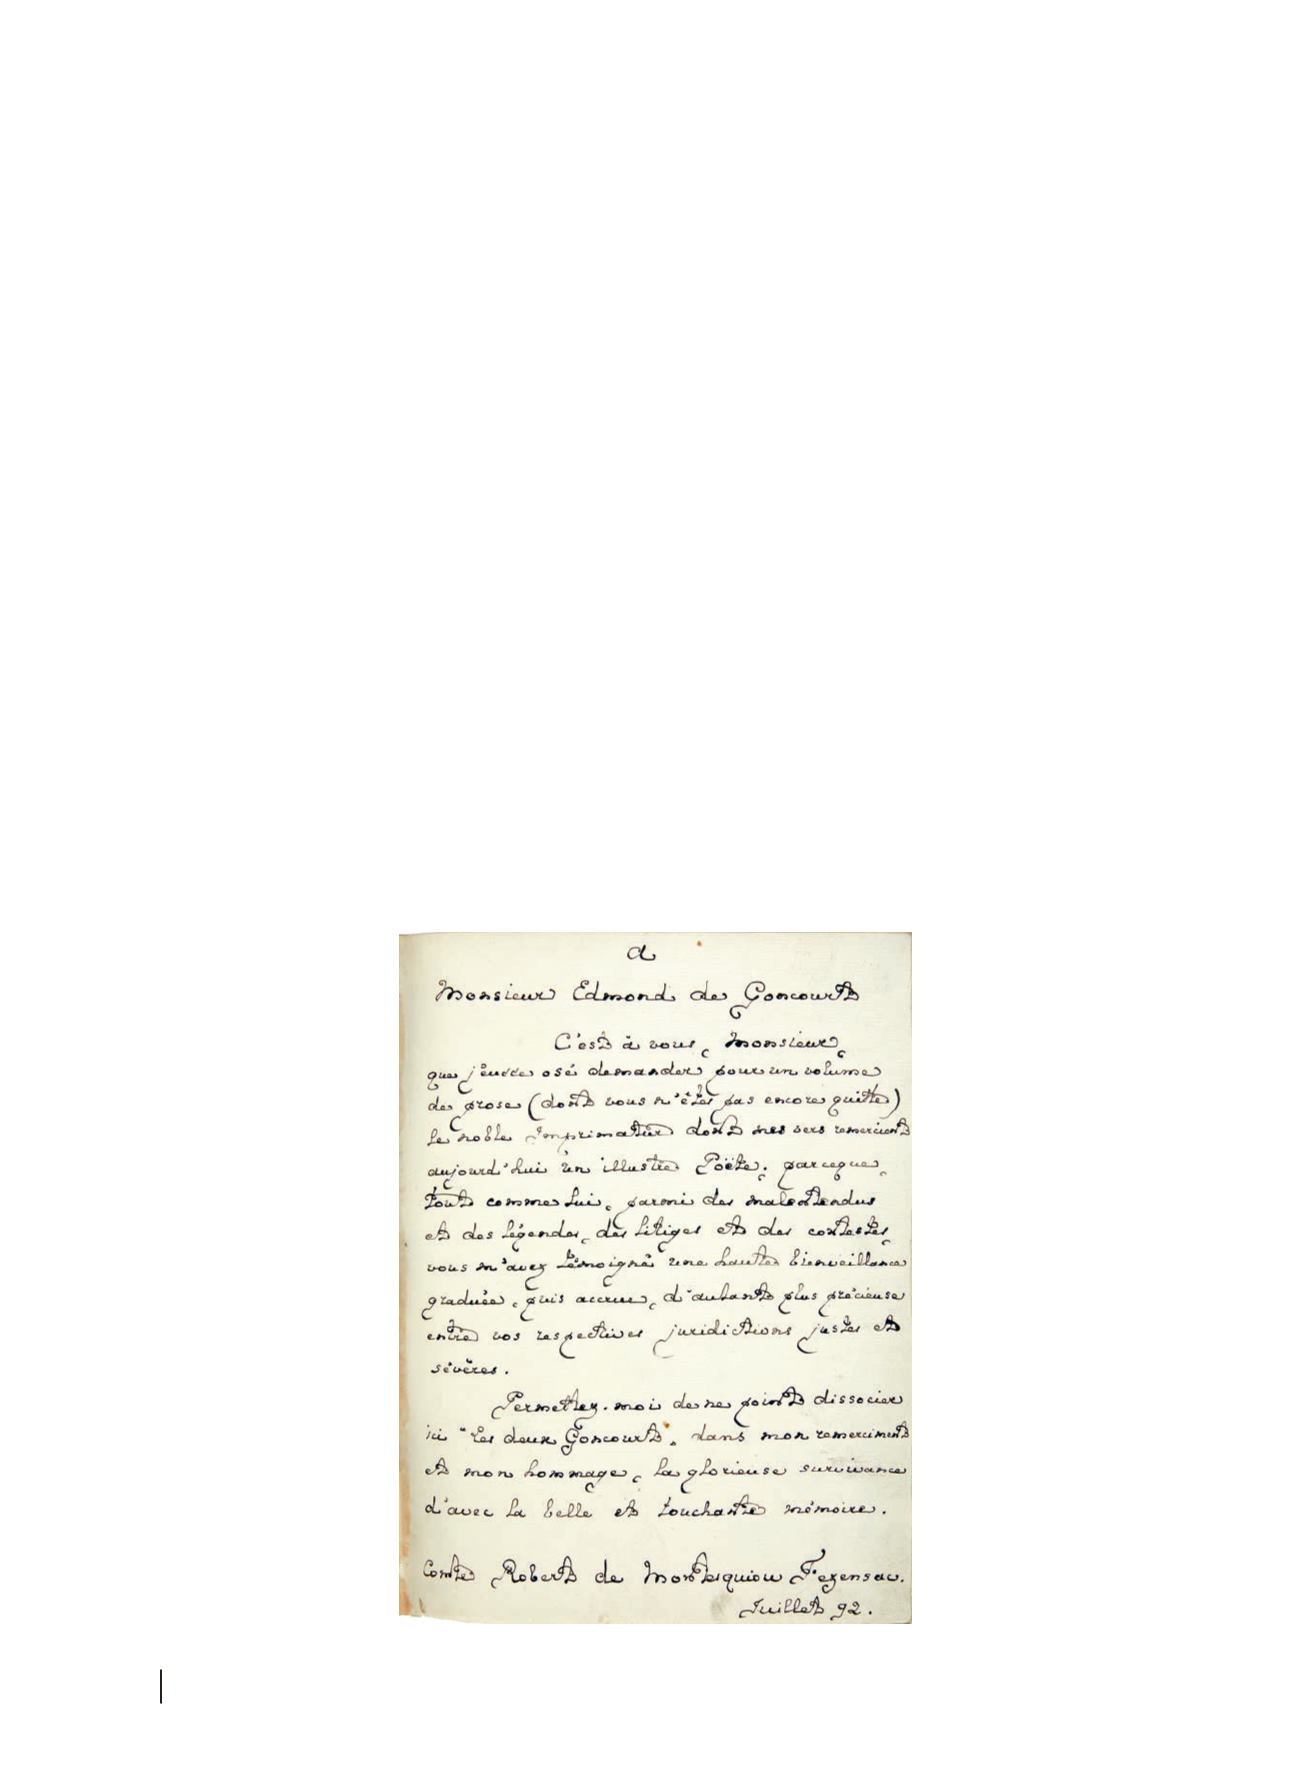 a
Monsieur Edmond de Goncourt
C'est à vous, Monsieur,
que j'eusse osé demander pour un volume
de prose (dont vous n'êtes pas encore quitte)
le noble Imprimatur dont mes vers remercient
aujourd'hui un illustre Poëte; parceque,
tout comme lui, parmi des malentendus
et des légendes, des litiges et des contestes,
vous m'avez témoigné une haute bienveillance
graduée, puis accrue, d'autant plus précieuse
entre vos respectives juridictions justes et
sévères.
Permettez-moi de ne point dissocier
ici "Les deux Goncourt", dans mon remerciment
et mon hommage, la glorieuse survivance
d'avec la belle et touchante mémoire.
Comte Robert de Montesquiou Fezensac.
Juillet 92.